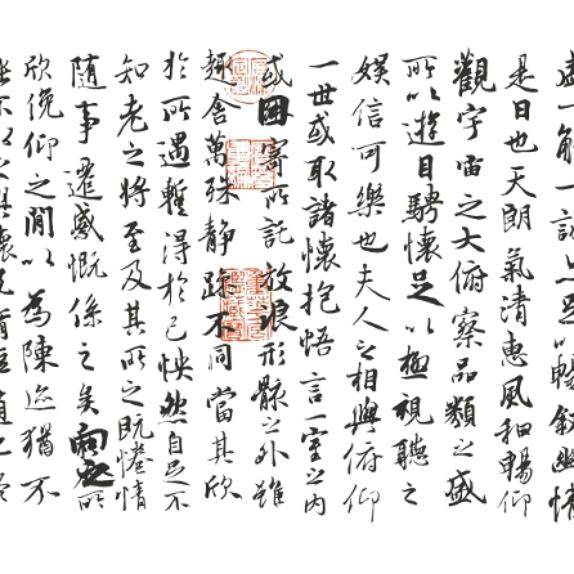 盛一觴一詠亦足以暢敘幽情
是日也天朗氣清惠風和暢仰
觀宇宙之大俯察品類之盛
所以遊目騁懷足以極視聽之
娛信可樂也夫人之相與俯仰
一世或取諸懷抱悟言一室之內
或因寄所託放浪形骸之外雖
趣舍萬殊靜躁不同當其欣
於所遇暫得於己怏然自足不
知老之將至及其所之既惓情
隨事遷感慨係之矣向之所
欣俛仰之閒以為陳迹猶不
能不以之興懷況脩短隨化終